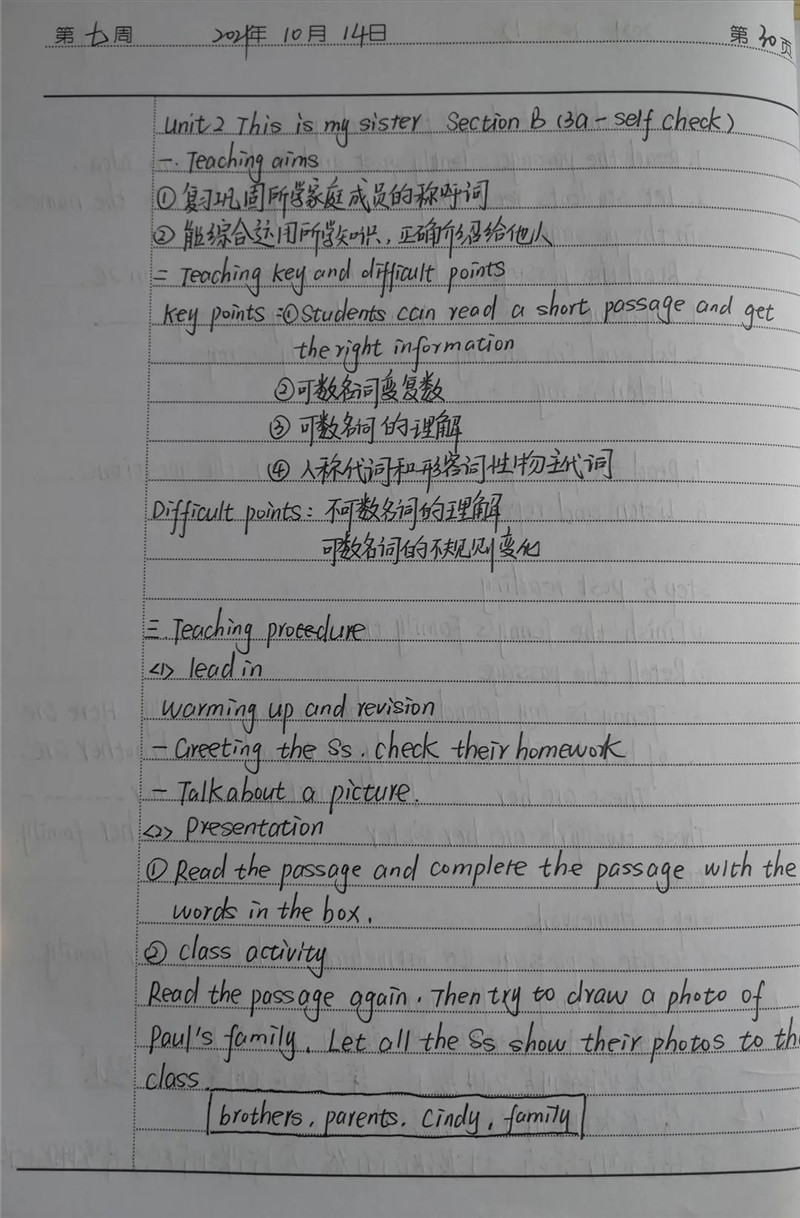 第七周 2021年 10月 14日 第30页
Unit 2 This is my sister Section B (3a - self Check)
一. Teaching aims
① 复习巩固所学家庭成员的称呼词
② 能综合运用所学知识,正确介绍给他人
二 Teaching key and difficult points
Key points :① Students can read a short passage and get
the right information
② 可数名词变复数
③ 可数名词的理解
④ 人称代词和形容词性物主代词
Difficult points: 不可数名词的理解
可数名词的不规则变化
三. Teaching procedure
<1> lead in
Warming up and revision
- Greeting the Ss. check their homework
- Talk about a picture.
<2> Presentation
① Read the passage and complete the passage with the
words in the box.
② class activity
Read the passage again. Then try to draw a photo of
Paul's family. Let all the Ss show their photos to the
class.
brothers, parents. Cindy, family